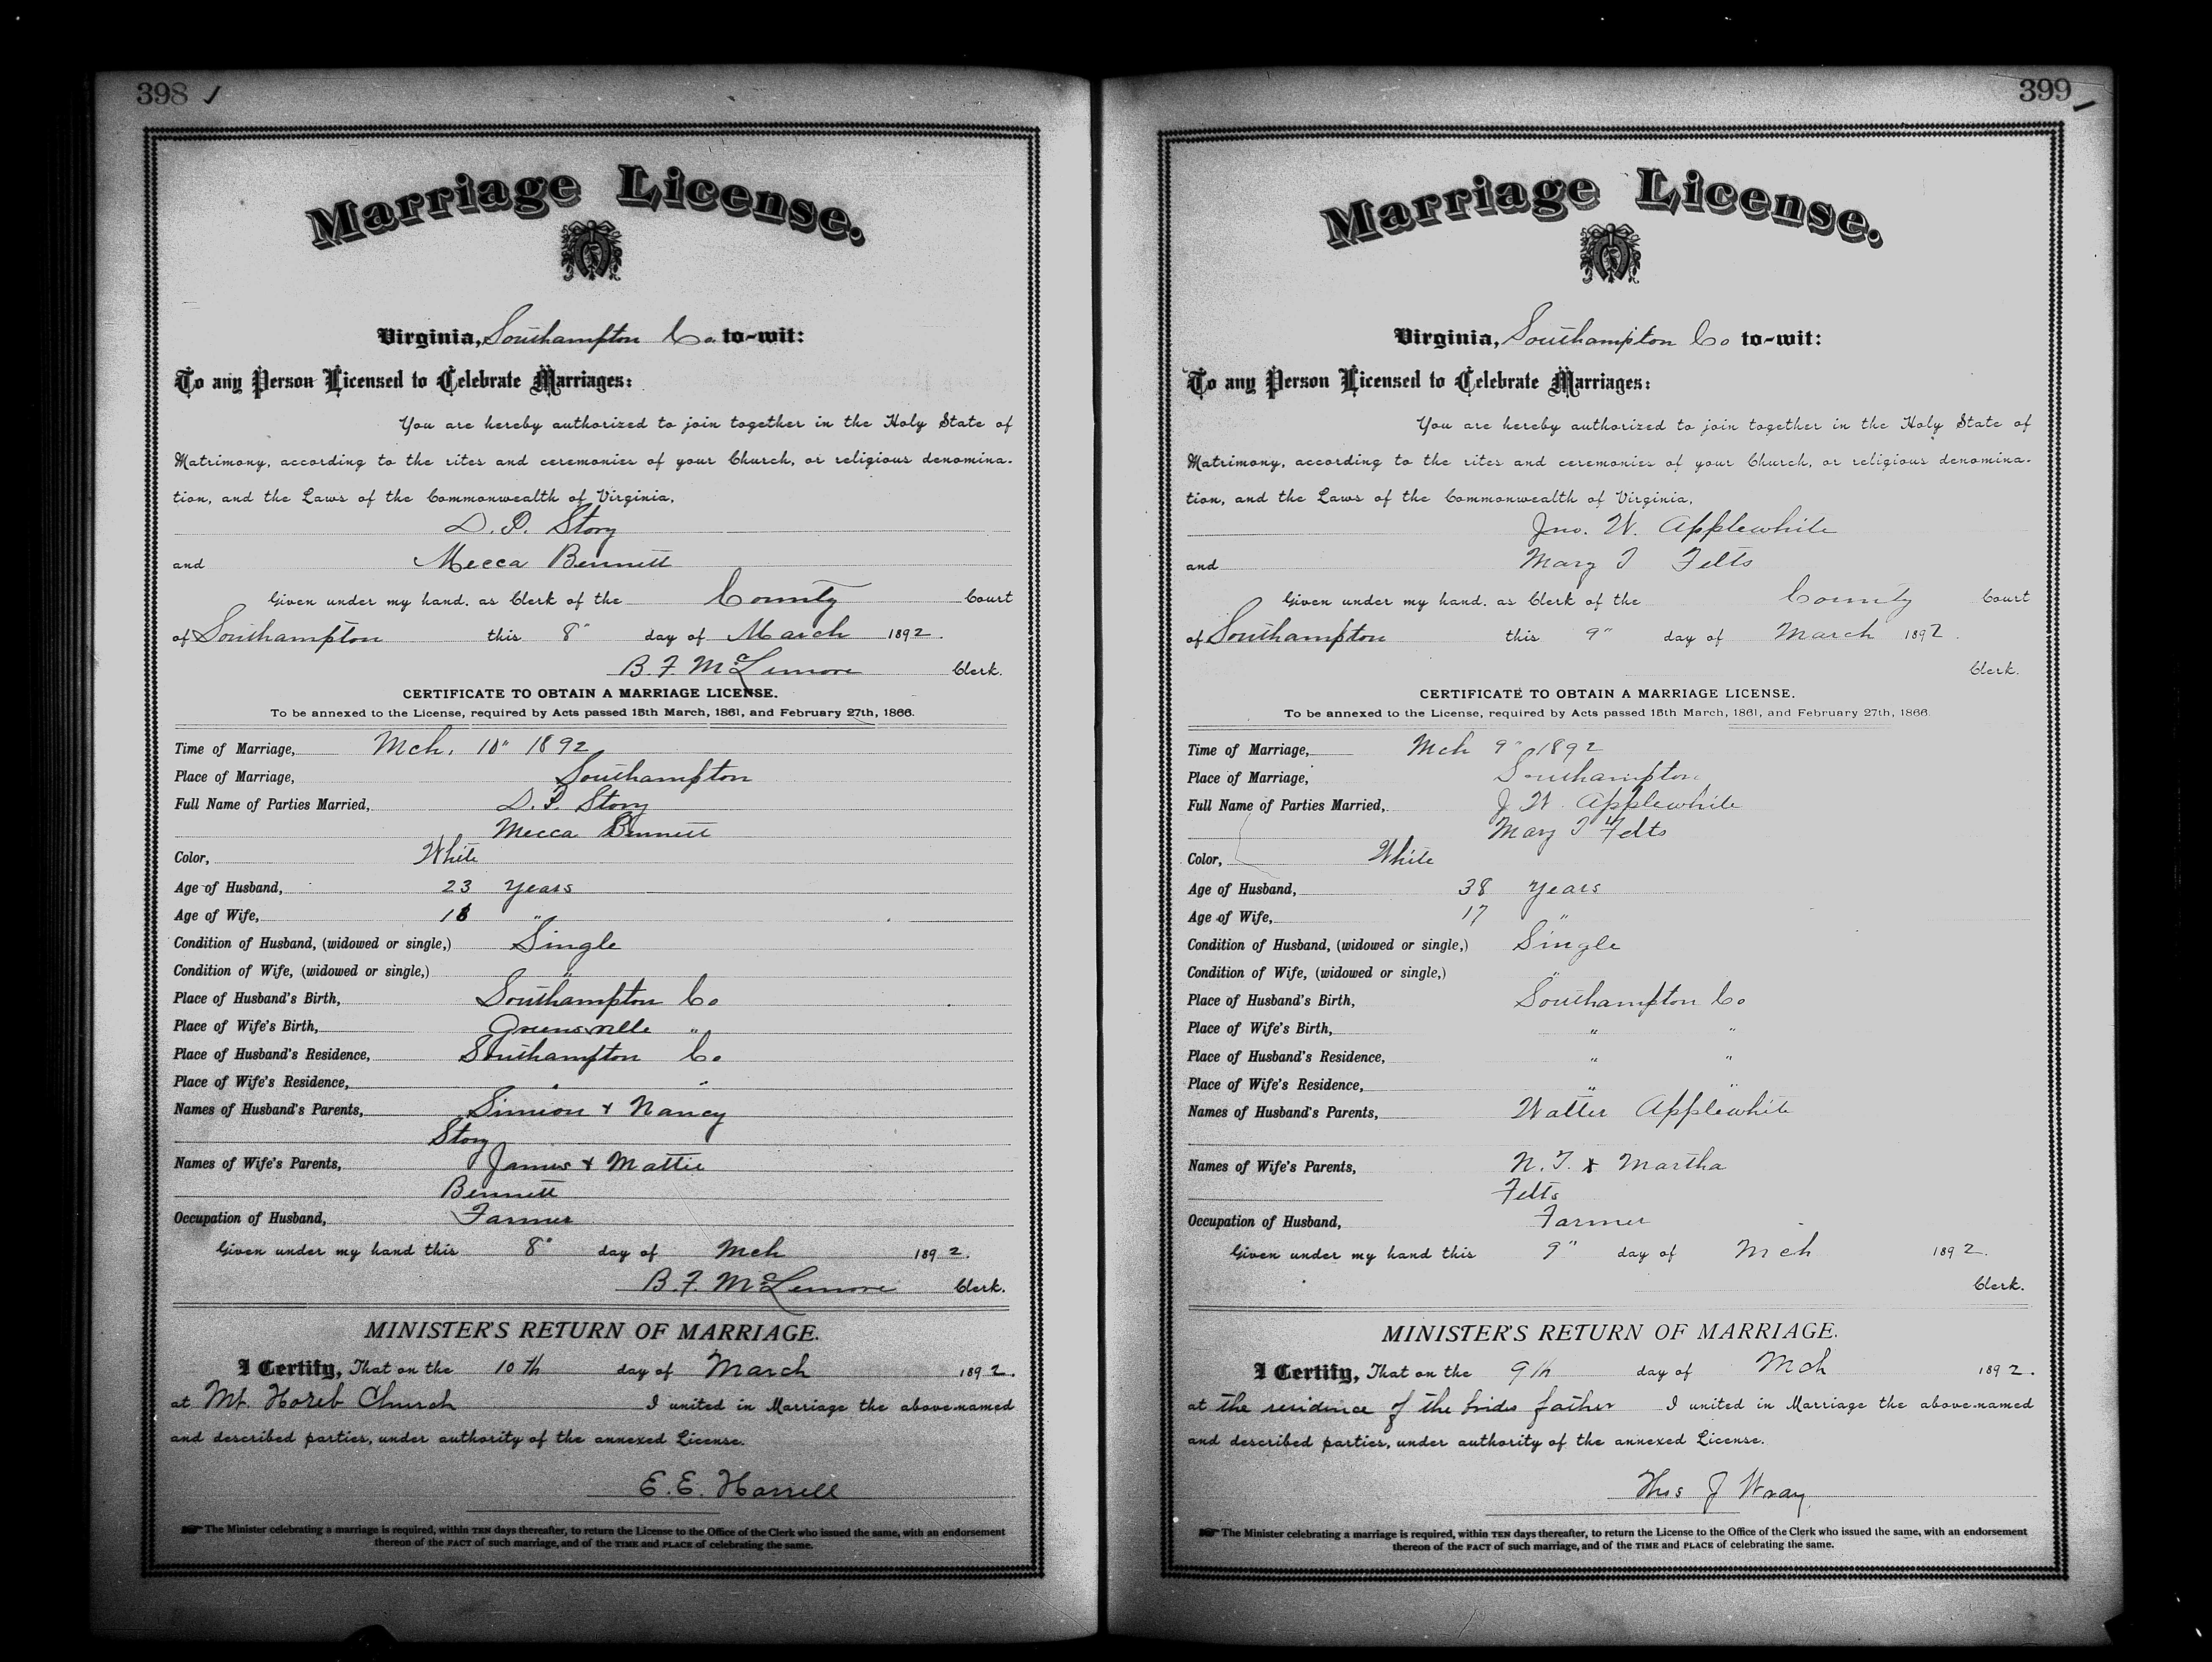 398
Marriage License.
Virginia, Southampton Co. to-wit:
To any Person Licensed to Celebrate Marriages:
You are hereby authorized to join together in the Holy State of
Matrimony, according to the rites and ceremonies of your Church, or religious denomina-
tion, and the Laws of the Commonwealth of Virginia,
D. P. Story
and Mecca Bennett
Given under my hand, as Clerk of the County Court
of Southampton this 8" day of March 1892.
B. F. McLemore Clerk.
CERTIFICATE TO OBTAIN A MARRIAGE LICENSE.
To be annexed to the License, required by Acts passed 15th March, 1861, and February 27th, 1866.
Time of Marriage, Mch. 10" 1892
Place of Marriage, Southampton
Full Name of Parties Married, D. P. Story
Mecca Bennett
Color, White
Age of Husband, 23 Years
Age of Wife, 18 "
Condition of Husband, (widowed or single,) Single
Condition of Wife, (widowed or single,) "
Place of Husband's Birth, Southampton Co
Place of Wife's Birth, Greensville "
Place of Husband's Residence, Southampton Co
Place of Wife's Residence, " "
Names of Husband's Parents, Simion & Nancy
Story
Names of Wife's Parents, James & Mattie
Bennett
Occupation of Husband, Farmer
Given under my hand this 8" day of Mch 1892.
B. F. McLemore Clerk.
MINISTER'S RETURN OF MARRIAGE.
I Certify, That on the 10th day of March 1892.
at Mt. Horeb Church I united in Marriage the above-named
and described parties, under authority of the annexed License.
E. E. Harrell
The Minister celebrating a marriage is required, within TEN days thereafter, to return the License to the Office of the Clerk who issued the same, with an endorsement
thereon of the FACT of such marriage, and of the TIME and PLACE of celebrating the same.
399
Marriage License.
Virginia, Southampton Co to-wit:
To any Person Licensed to Celebrate Marriages:
You are hereby authorized to join together in the Holy State of
Matrimony, according to the rites and ceremonies of your Church, or religious denomina-
tion, and the Laws of the Commonwealth of Virginia,
Jno. W. Applewhite
and Mary T Felts
Given under my hand, as Clerk of the County Court
of Southampton this 9" day of March 1892.
Clerk.
CERTIFICATE TO OBTAIN A MARRIAGE LICENSE.
To be annexed to the License, required by Acts passed 15th March, 1861, and February 27th, 1866.
Time of Marriage, Mch 9" 1892
Place of Marriage, Southampton
Full Name of Parties Married, J W. Applewhite
Mary T Felts
Color, White
Age of Husband, 38 Years
Age of Wife, 17 "
Condition of Husband, (widowed or single,) Single
Condition of Wife, (widowed or single,) "
Place of Husband's Birth, Southampton Co
Place of Wife's Birth, " "
Place of Husband's Residence, " "
Place of Wife's Residence, " "
Names of Husband's Parents, Walter Applewhite
Names of Wife's Parents, N. T. & Martha
Felts
Occupation of Husband, Farmer
Given under my hand this 9" day of Mch 1892.
Clerk.
MINISTER'S RETURN OF MARRIAGE.
I Certify, That on the 9th day of Mch 1892.
at the residence of the brides father I united in Marriage the above-named
and described parties, under authority of the annexed License.
Thos J Wray
The Minister celebrating a marriage is required, within TEN days thereafter, to return the License to the Office of the Clerk who issued the same, with an endorsement
thereon of the FACT of such marriage, and of the TIME and PLACE of celebrating the same.